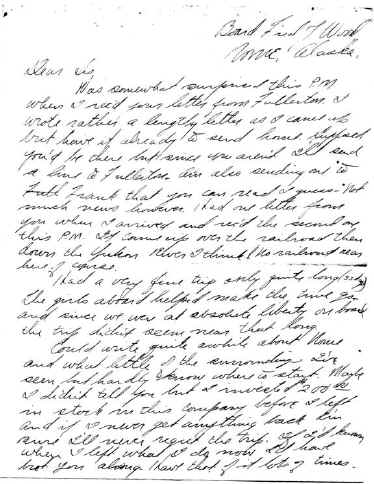 Board Find T Wood
Nome, Alaska.
Dear Sis,
Was somewhat surprised this P.M.
when I rec'd your letter from Fullerton I
wrote rather a lengthy letter as I came up
but have it already to send home supposed
you'd be there but since you aren't I'll send
a line to Fullerton. Am also sending one to
Faith Frank that you can read I guess. Not
much news however. Had one letter from
you when I arrived and rec'd the second one
this P.M. It came up over the railroad then
down the Yukon River I think. (No railroad near
here of course.
Had a very fine trip only quite long
The girls aboard helped make the time go
and since we were at absolute liberty on board
the trip didn't seem near that long.
Could write quite awhile about Nome
and what little of the surrounding I've
seen but hardly know where to start. Maybe
I didn't tell you but I invested $200
in stock in this company before I left
and if I never get anything back I'm
sure I'll never regret the trip. If I'd known
when I left what I do now I'd have
brot you along. Have that of it lots of times.